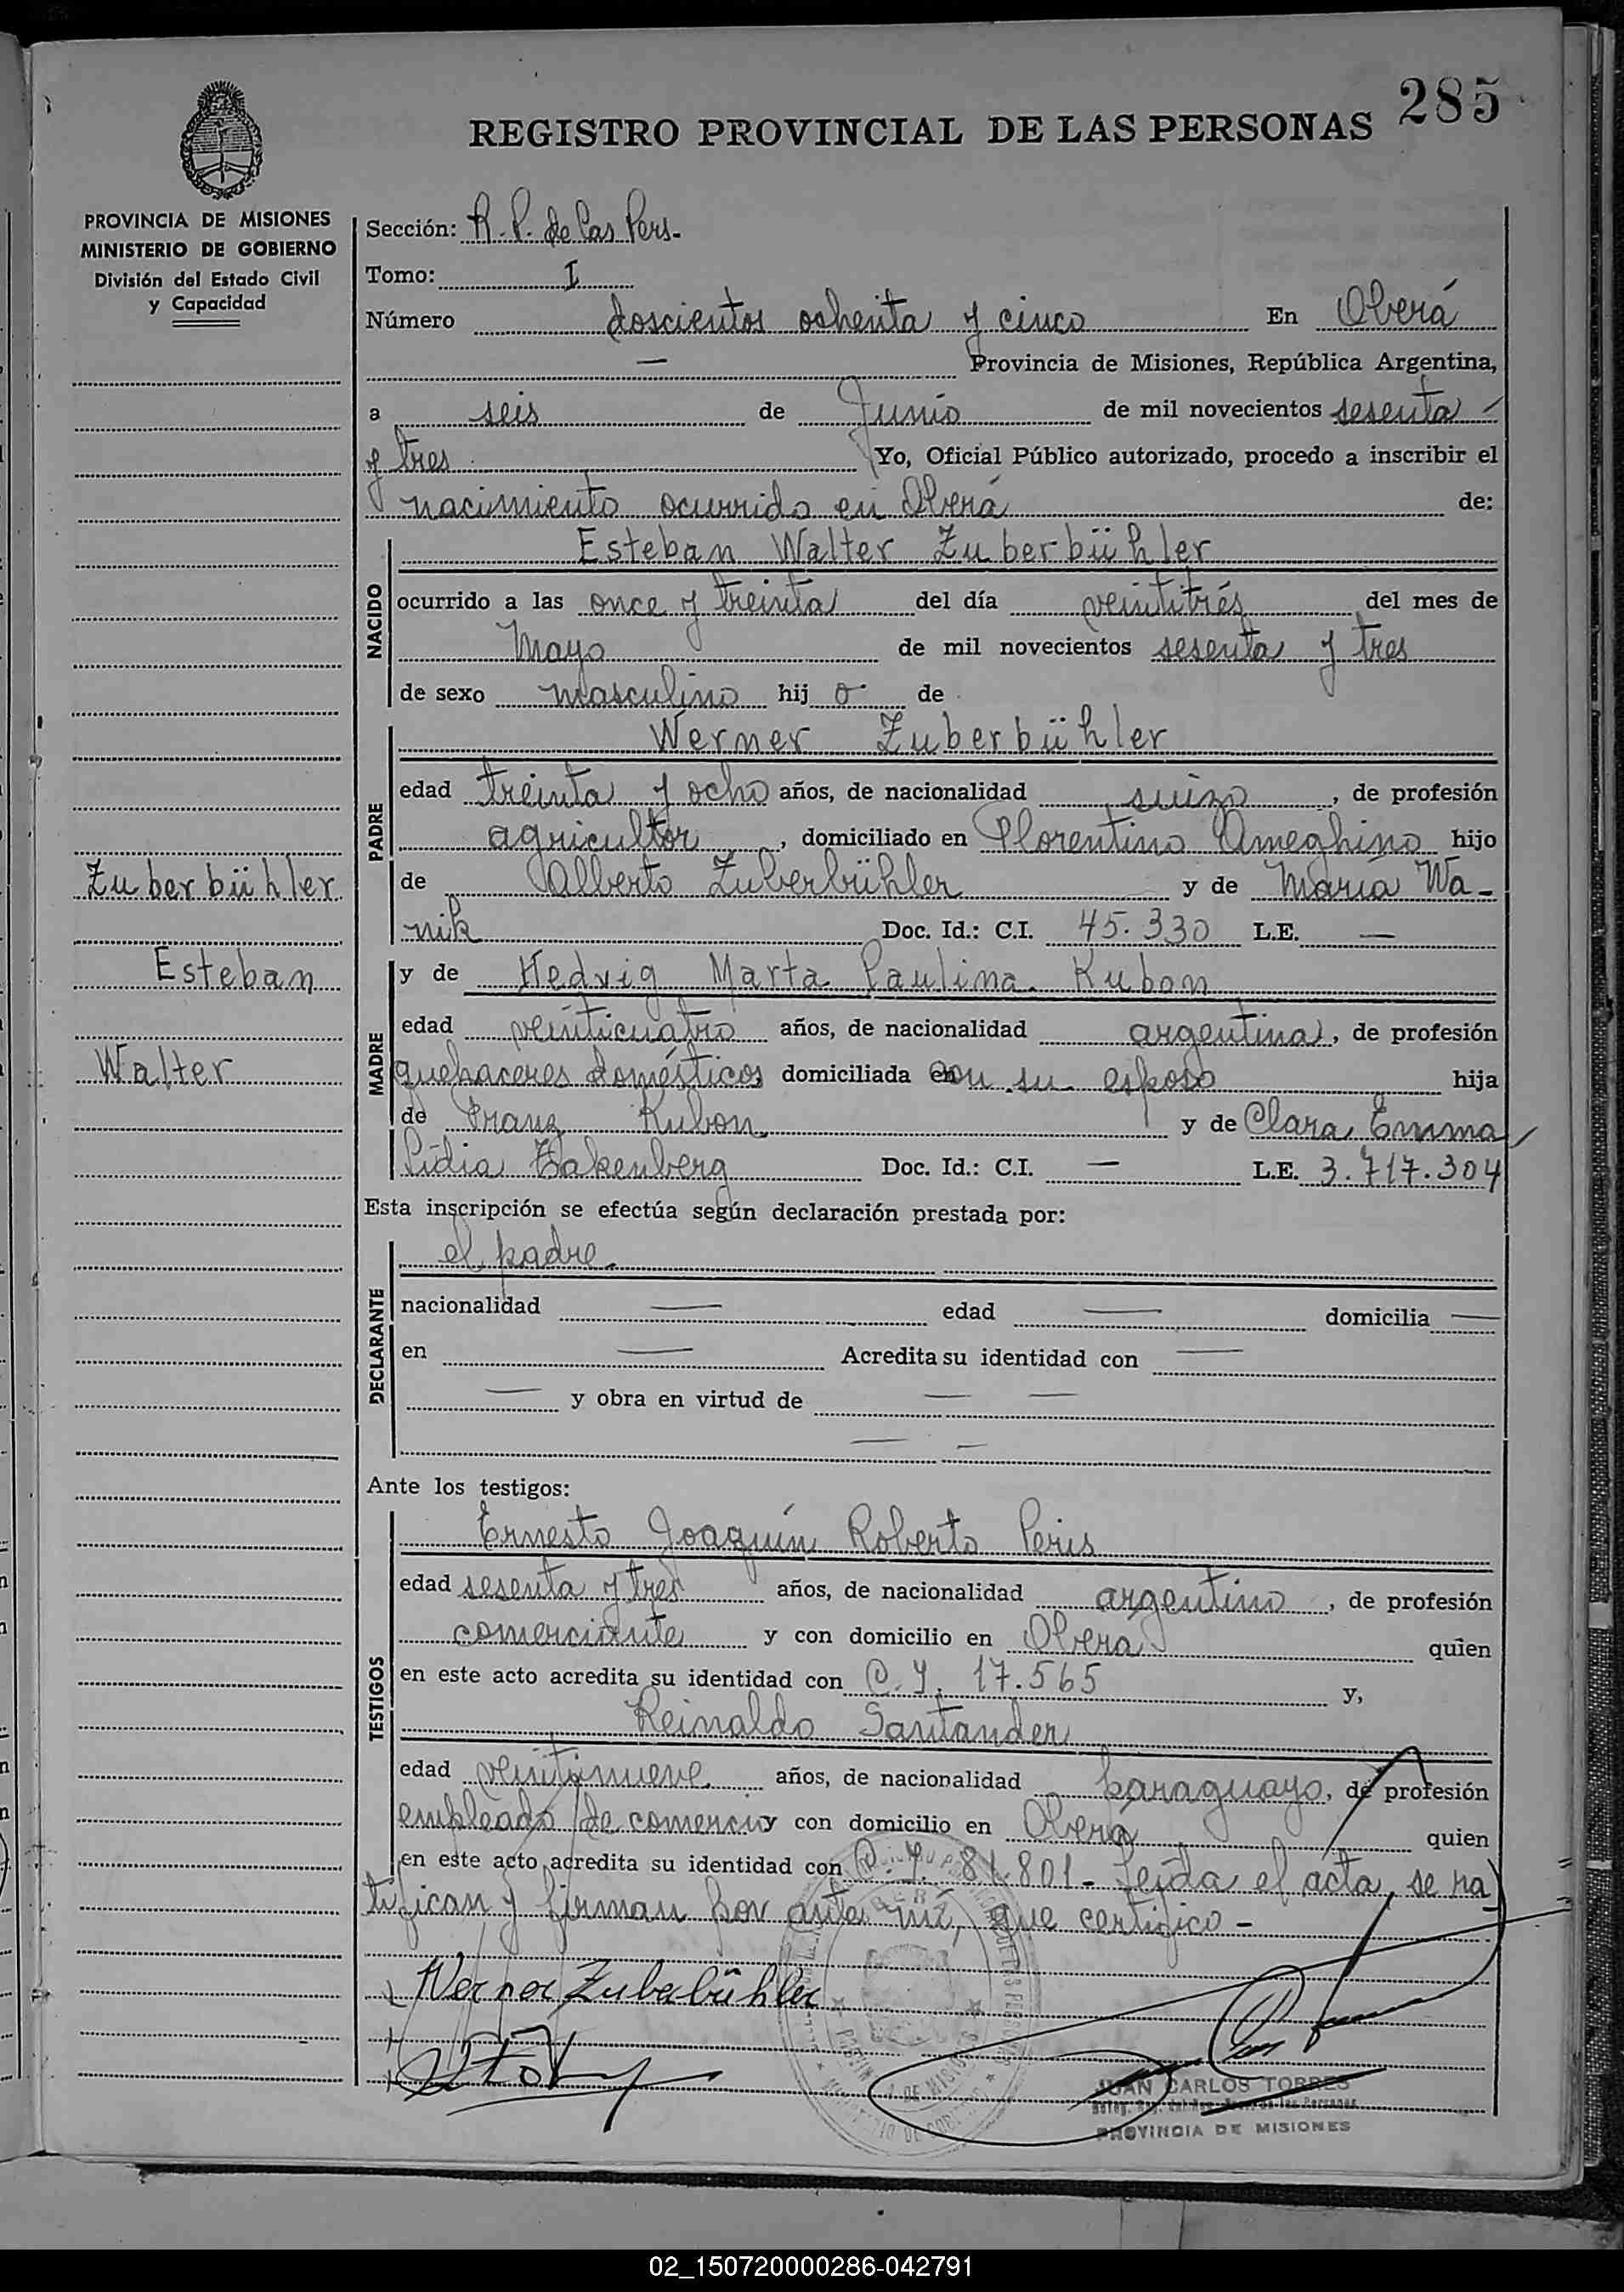 285
REGISTRO PROVINCIAL DE LAS PERSONAS
PROVINCIA DE MISIONES
MINISTERIO DE GOBIERNO
División del Estado Civil
y Capacidad
Zuberbühler
Esteban
Walter
Sección: R. P. de las Pers.
Tomo: I
Número doscientos ochenta y cinco En Oberá
— Provincia de Misiones, República Argentina,
a seis de Junio de mil novecientos sesenta
y tres Yo, Oficial Público autorizado, procedo a inscribir el
nacimiento ocurrido en Oberá de:
NACIDO
Esteban Walter Zuberbühler
ocurrido a las once y treinta del día veintitrés del mes de
Mayo de mil novecientos sesenta y tres
de sexo masculino hij o de
PADRE
Werner Zuberbühler
edad treinta y ocho años, de nacionalidad suizo, de profesión
agricultor, domiciliado en Florentino Ameghino hijo
de Alberto Zuberbühler y de María Wa-
nik Doc. Id.: C.I. 45.330 L.E. —
MADRE
y de Hedvig Marta Paulina Kubon
edad veinticuatro años, de nacionalidad argentina, de profesión
quehaceres domésticos domiciliada con su esposo hija
de Franz Kubon y de Clara Emma
Lidia Zakenberg Doc. Id.: C.I. — L.E. 3.717.304
Esta inscripción se efectúa según declaración prestada por:
DECLARANTE
el padre
nacionalidad — edad — domicilia —
en — Acredita su identidad con —
— y obra en virtud de — —
— —
Ante los testigos:
TESTIGOS
Ernesto Joaquín Roberto Peris
edad sesenta y tres años, de nacionalidad argentino, de profesión
comerciante y con domicilio en Oberá quien
en este acto acredita su identidad con C. I. 17.565 y,
Reinaldo Santander
edad veintinueve años, de nacionalidad paraguayo, de profesión
empleado de comercio y con domicilio en Oberá quien
en este acto acredita su identidad con C. I. 81.801- Leída el acta, se ra
tifican y firman por ante mí, que certifico-
Werner Zuberbühler
JUAN CARLOS TORRES
PROVINCIA DE MISIONES
02_150720000286-042791